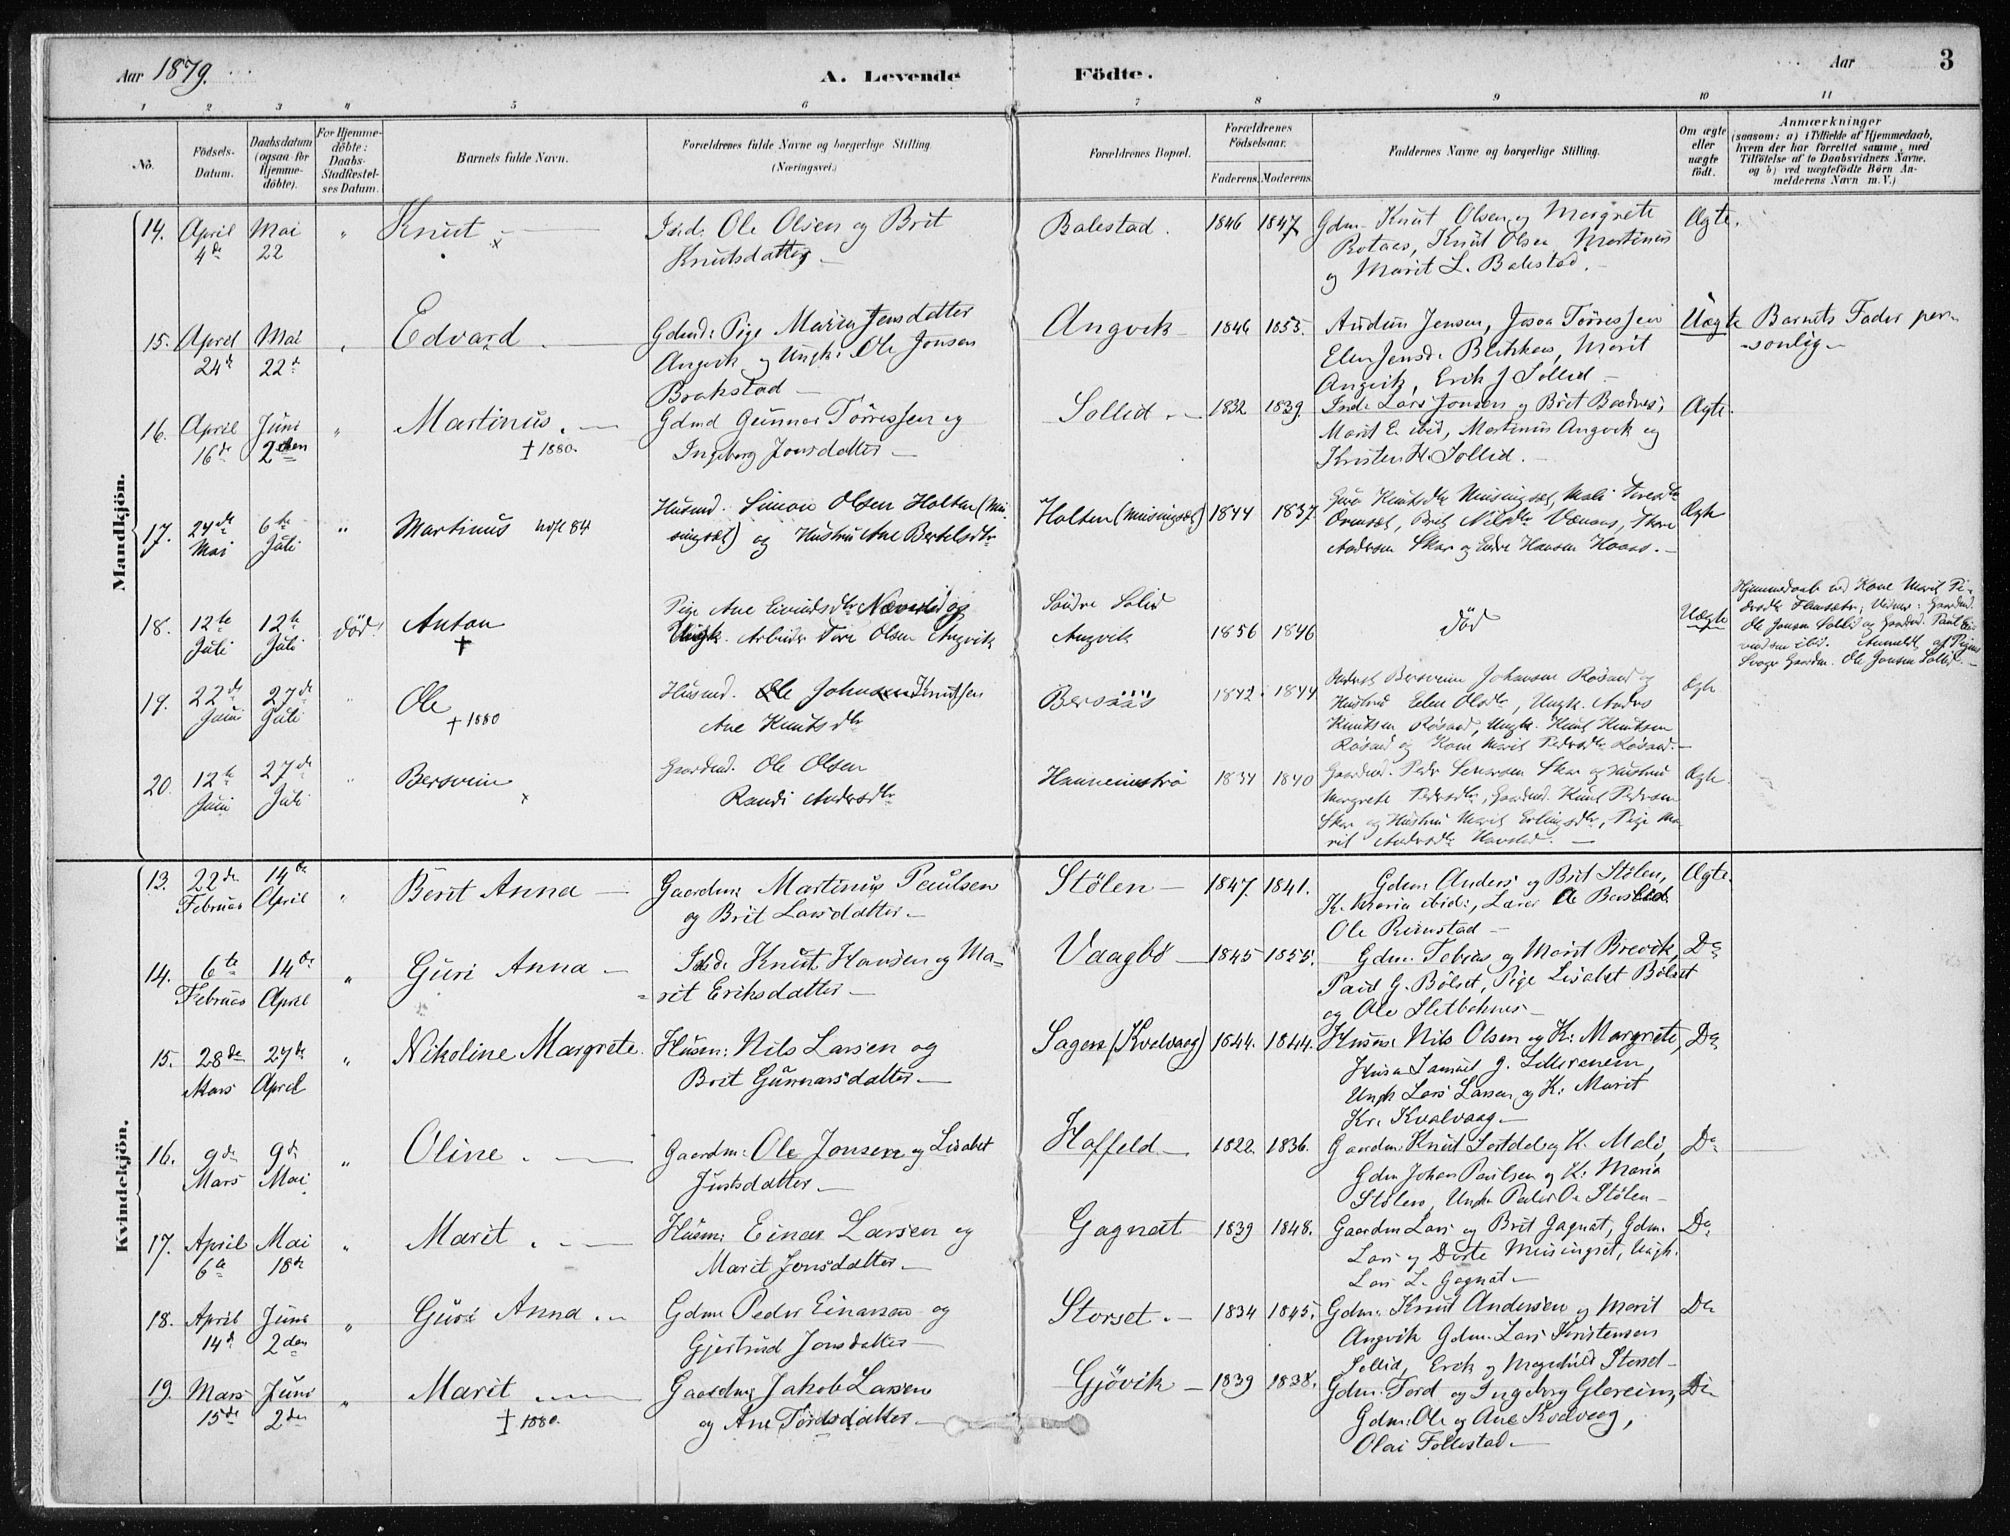 Aar 1879.
A. Levende Födte.
Aar
3
1 2 3 4 5 6 7 8 9 10 11
No.
Födsels-Datum.
Daabsdatum (ogsaa for Hjemme-döbte).
For Hjemme-döbte: Daabs-Stadfæstel-ses Datum.
Barnets fulde Navn.
Forældrenes fulde Navne og borgerlige Stilling (Næringsvei.)
Forældrenes Bopæl.
Forældrenes Födselsaar.
Faderens. Moderens.
Faddernes Navne og borgerlige Stilling.
Om ægte eller uægte födt.
Anmærkninger (saasom: a) i Tilfælde af Hjemmedaab, hvem der har forrettet samme, med Tilföielse af to Daabsvidners Navne, og b) ved uægtefödte Börn An-melderens Navn m. V.)
Mandkjön.
14. April 4de Mai 22 " Knut x Ole Olsen og Brit Knutsdatter Balestad. 1846 1847 Gdm. Knut Olsen og Margrete
Rotaas, Knut Olsen Martinus
og Marit L. Balestad. Ægte.
15. April 24de Mai 22de " Edvard Pige Marit Jensdatter
Angvik og Ungk: Ole Jonsen
Brakstad Angvik 1846 1855. Audun Jensen,
Marit
Angvik, Erik J Sollid Uægte Barnets Fader per-
sonlig
16. April 16de Juni 2den " Martinus. † 1880. Gdmd Gunnar Tørressen og
Ingeborg Jonsdatter Sollid 1832 1839. Lars Jonsen og Brit
Marit E. ibid, Martinus Angvik og
Kristen H. Sollid. Ægte.
17. 24de Mai 6te Juli " Martinus Husmd. Simon Olsen Holten (Mi-
singset) og Hustru Ane Bertelsdtr Holten (Misingset) 1844 1837. Guro Knutsdtr Misingset, Mali
Brit Nilsdtr
Andersen Skar og Endre Hansen Ægte
18. 12te Juli 12te Juli død! Anton † Pige Ane Eivindsdtr
Ungk. Arbeider Tore Olsen Angvik Søndre Solid
Angvik 1856 1846 død Uægte Hjemmedøbt ved Kone Marit Pe-
Ole Jonsen Sollid og Gaardmd. Paul
ibid. Anmeldt af Pigens
Svoger Gaardm. Ole Jonsen Sollid.
19. 22de Juni 27de Juli " Ole † 1880 Husmd. Ole Johnsen Knutsen
Ane Knutsdtr 1842 1844 Bersvein Johansen Røsand og
Hustru Elen Olsdtr, Ungk. Anders
Knutsen Røsand, Ungk. Knut Knutsen
Røsand og Kone Marit Pedersdtr Røsand. Ægte
20. 12te Juni 27de Juli " Bersvein x Gaardmd. Ole Olsen
Randi Andersdtr 1834 1840 Gaardmd. Peder Skar og Hustru
Margrete Pedersdtr, Gaardmd. Knut Pedersen
Skar og Hustru Marit Erlingsdtr, Pige Ma-
rit Andersdtr Ægte.
Kvindekjön.
13. 22de Februar 14de April " Berit Anna Gaardm: Martinus Paulsen
og Brit Larsdatter Stölen 1847. 1841. Gdm: Anders og Brit Stölen,
K. Maria ibid:, Lærer
Ole Rimstad Ægte.
14. 6te Februar 14de April " Guri Anna Knut Hansen og Ma-
rit Eriksdatter Vaagbø 1845 1855. Gdm. Tobias og Marit Brevik,
Paul G. Bölset, Pige Lisabet Bölset
og Ole Sletbakmes Do
15. 28de Mars 27de April " Nikoline Margrete. Husm: Nils Larsen og
Brit Gunnarsdatter Sagen (Kvalvaag) 1844. 1844. Husm: Nils Olsen og K: Margrete,
Samuel
Ungk Lars Larsen og K: Marit
Kr. Kvalvaag Do
16. 9de Mars 9de Mai " Oline. Gaardm: Ole Jonsen og Lisabet
Justsdatter Hoffeld 1822. 1836. Gaardm: Knut og K. Mali,
Gdm Johan Paulsen og K: Maria
Stölen, Ungk Peder O. Stölen Do
17. April 6te Mai 18de " Marit. Husm: Einar Larsen og
Marit Jonsdatter Gagnat 1839 1848. Gaardm Lars og Brit Gagnat, Gdm.
Lars og Dorte Misingset, Ungk.
Lars L. Gagnat Do
18. April 14de Juni 2den " Guri Anna Gdm: Peder Einarsen og
Gjertrud Jonsdatter Storset. 1834 1845. Gdm: Knut Andersen og Marit
Angvik Gdm. Lars Kristensen
Sollid, Erik og Magnhild Storset Do
19. Mars 15de Juni 2den " Marit † 1880. Gaardm: Jakob Larsen
og Ane Tordsdatter Gjövik 1839 1838. Gdm: Tord og Ingeborg Glereim,
Gdm: Ole og Ane Kvalvaag,
Olai Follestad Do